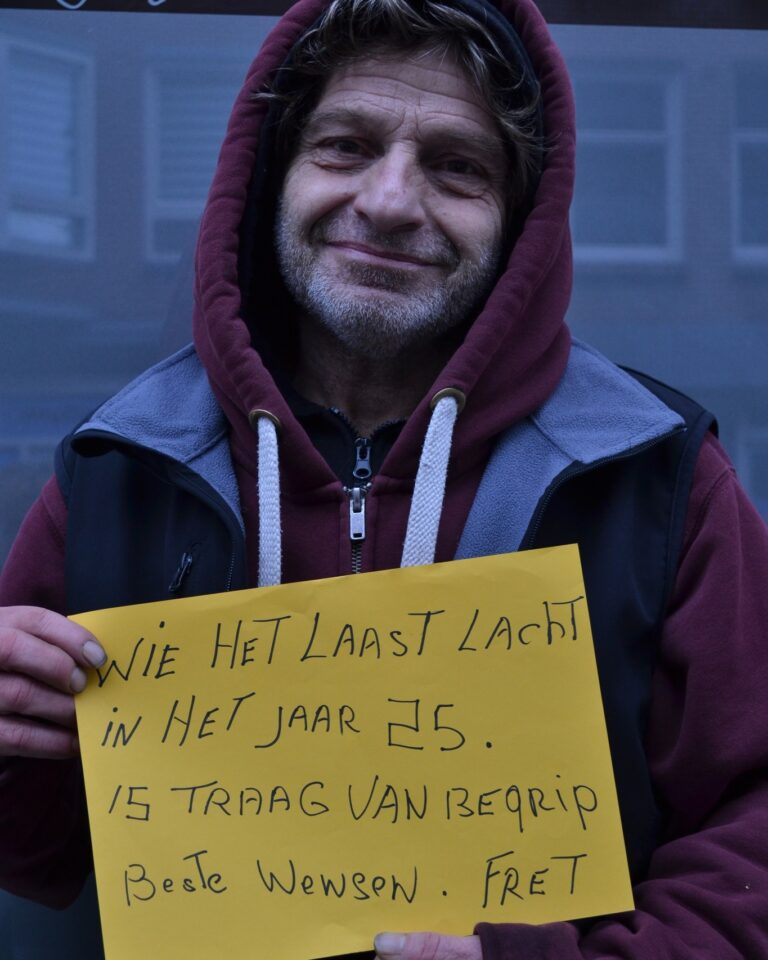 WIE HET LAAST LAchT
iN HET JAAR 25.
IS TRAAG VAN BEGRIP
Beste Wensen. FRET